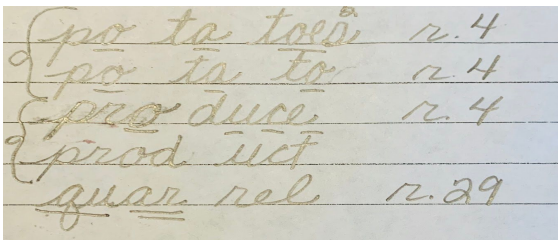 po ta toes² r. 4
po ta to r. 4
pro duce r. 4
prod uct
quar rel r. 29